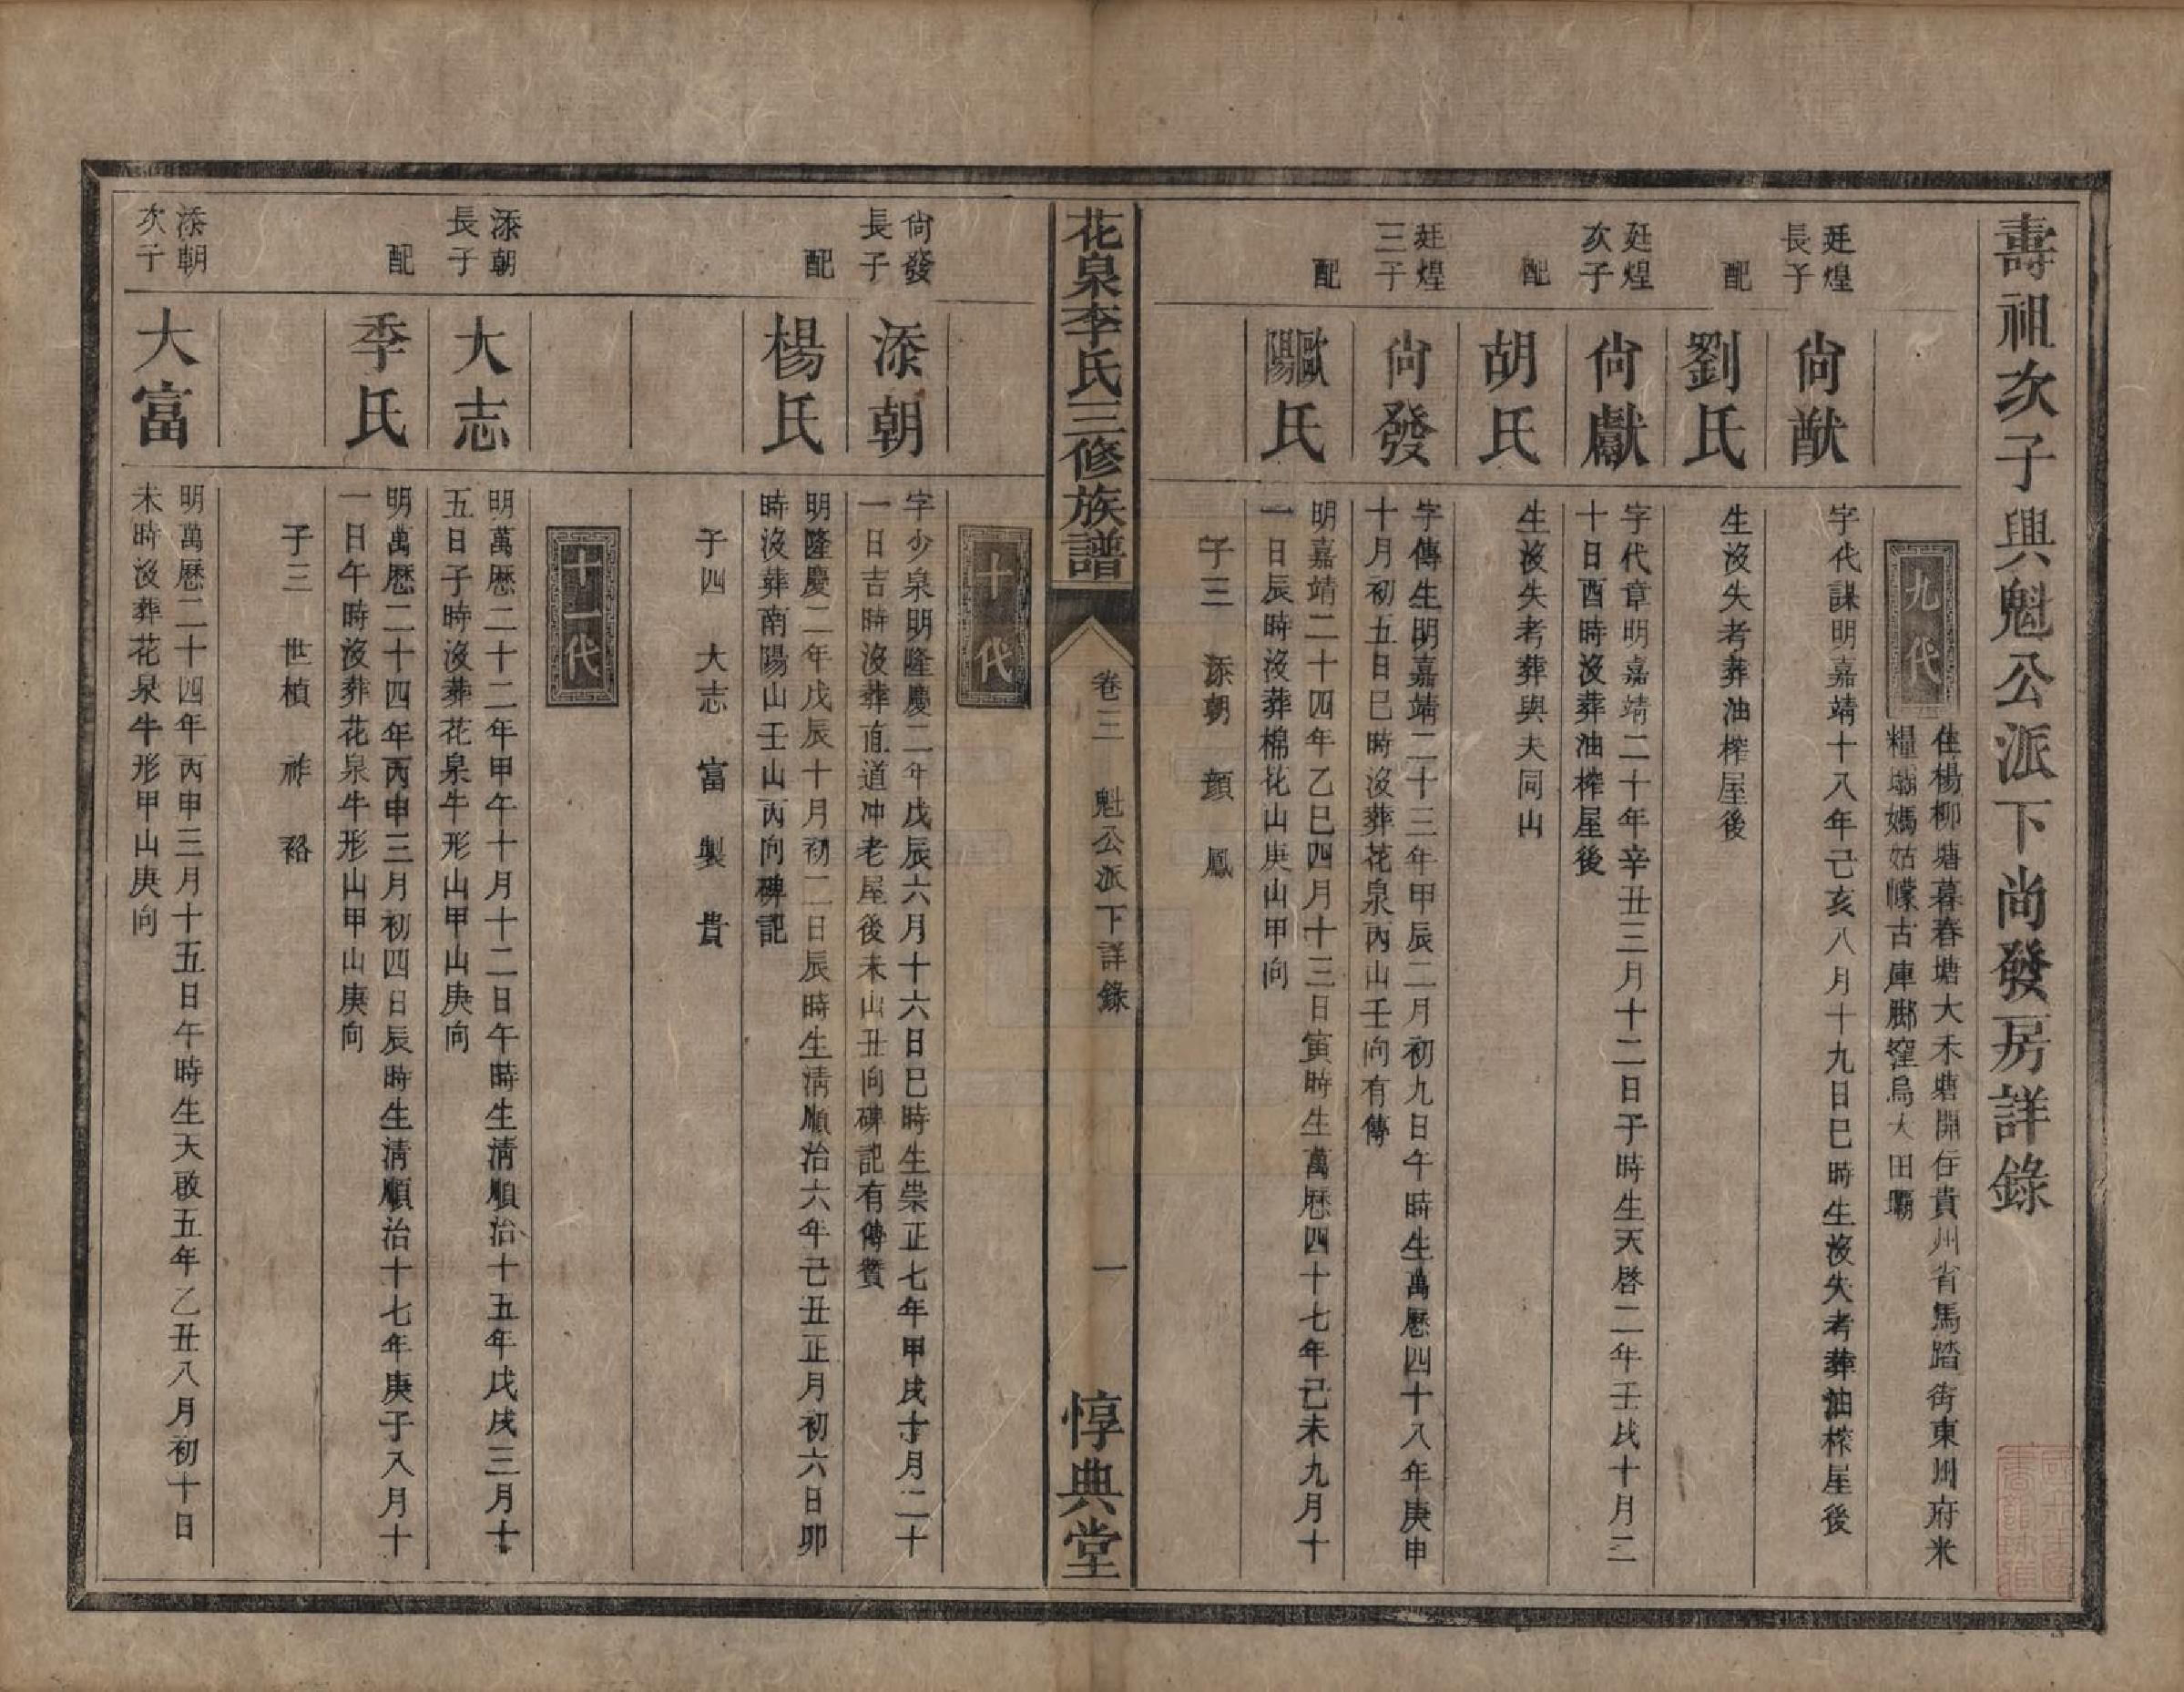 壽祖次子興魁公派下尚發房詳錄
九代
住楊柳塘暮春塘大禾塘開住貴州省馬踏街東川府米
糧壩媽姑幪古庫腳窪烏大田壩
廷煌
長子
尙猷
字代謀明嘉靖十八年己亥八月十九日巳時生沒失考葬油榨屋後
配
劉氏
生沒失考葬油榨屋後
廷煌
次子
尙獻
字代章明嘉靖二十年辛丑三月十二日子時生天啓二年壬戌十月二
十日酉時沒葬油榨屋後
配
胡氏
生沒失考葬與夫同山
廷煌
三子
尙發
字傳生明嘉靖二十三年甲辰二月初九日午時生萬曆四十八年庚申
十月初五日巳時沒葬花泉丙山壬向有傳
配
歐陽氏
明嘉靖二十四年乙巳四月十三日寅時生萬曆四十七年己未九月十
一日辰時沒葬棉花山庚山甲向
子三 添朝 顏 鳳
花泉李氏三修族譜
卷三 魁公派下詳錄
一
惇典堂
十代
尙發
長子
添朝
字少泉明隆慶二年戊辰六月十六日巳時生崇正七年甲戌十月二十
一日吉時沒葬直道冲老屋後未山丑向碑記有傳贊
配
楊氏
明隆慶二年戊辰十月初二日辰時生淸順治六年己丑正月初六日卯
時沒葬南陽山壬山丙向碑記
子四 大志 富 製 貴
十一代
添朝
長子
大志
明萬曆二十二年甲午十月十二日午時生淸順治十五年戊戌三月十
五日子時沒葬花泉牛形山甲山庚向
配
季氏
明萬曆二十四年丙申三月初四日辰時生淸順治十七年庚子八月十
一日午時沒葬花泉牛形山甲山庚向
子三 世楨 祚 裕
添朝
次子
大富
明萬曆二十四年丙申三月十五日午時生天啟五年乙丑八月初十日
未時沒葬花泉牛形甲山庚向